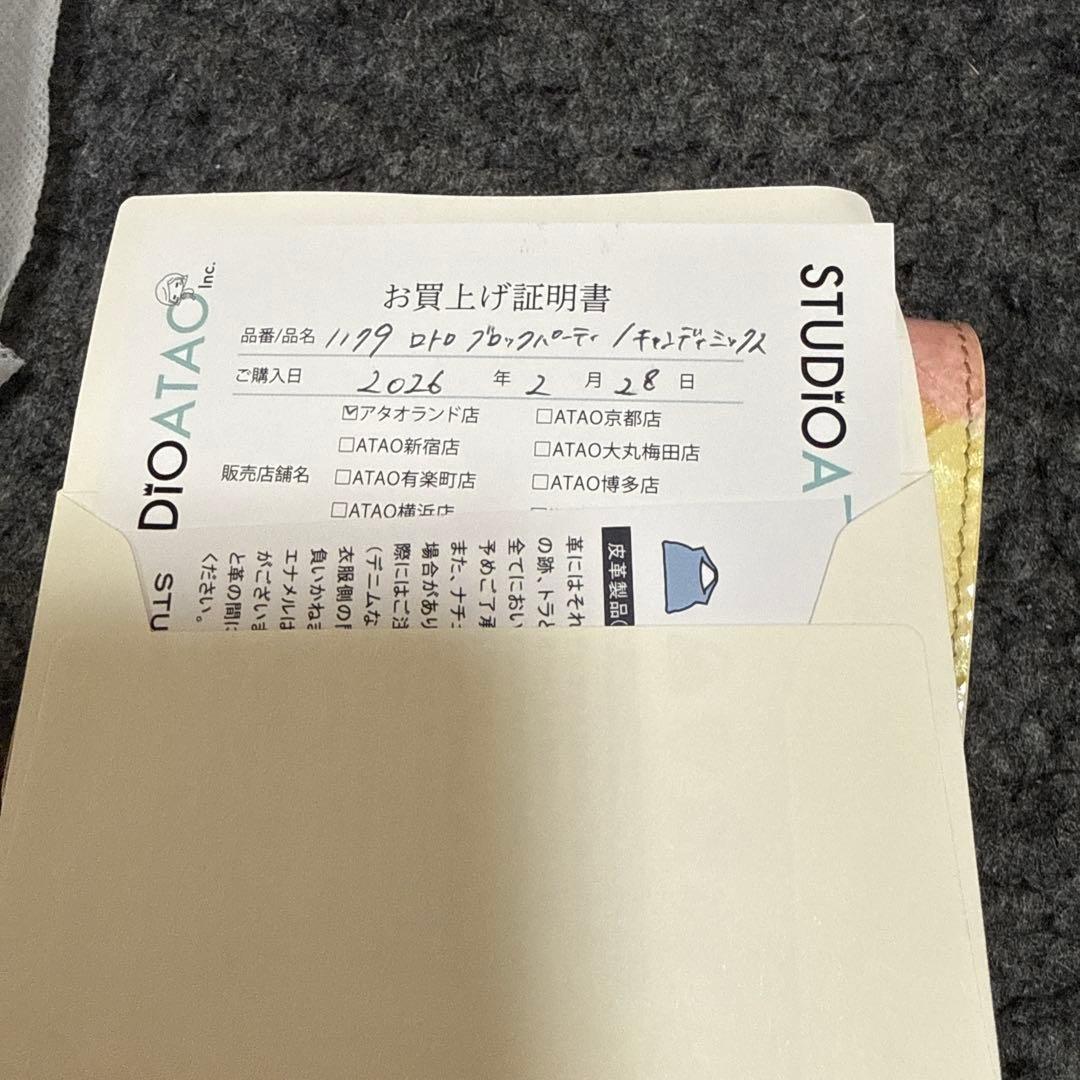 お買上げ証明書
品番/品名 1179 ロトロ ブロックパーティ / キャンディミックス
ご購入日 2026 年 2 月 28 日
販売店舗名
☑アタオランド店 □ATAO京都店
□ATAO新宿店 □ATAO大丸梅田店
□ATAO有楽町店 □ATAO博多店
□ATAO横浜店
DIOATAO Inc.
STUDIOA
STU
皮革製品
革にはそれ
の跡、トラと
全てにおい
予めご了承
また、ナチュ
場合があり
際にはご注
(デニムな
衣服側の
負いかねま
エナメルは
がございま
と革の間に
ください。